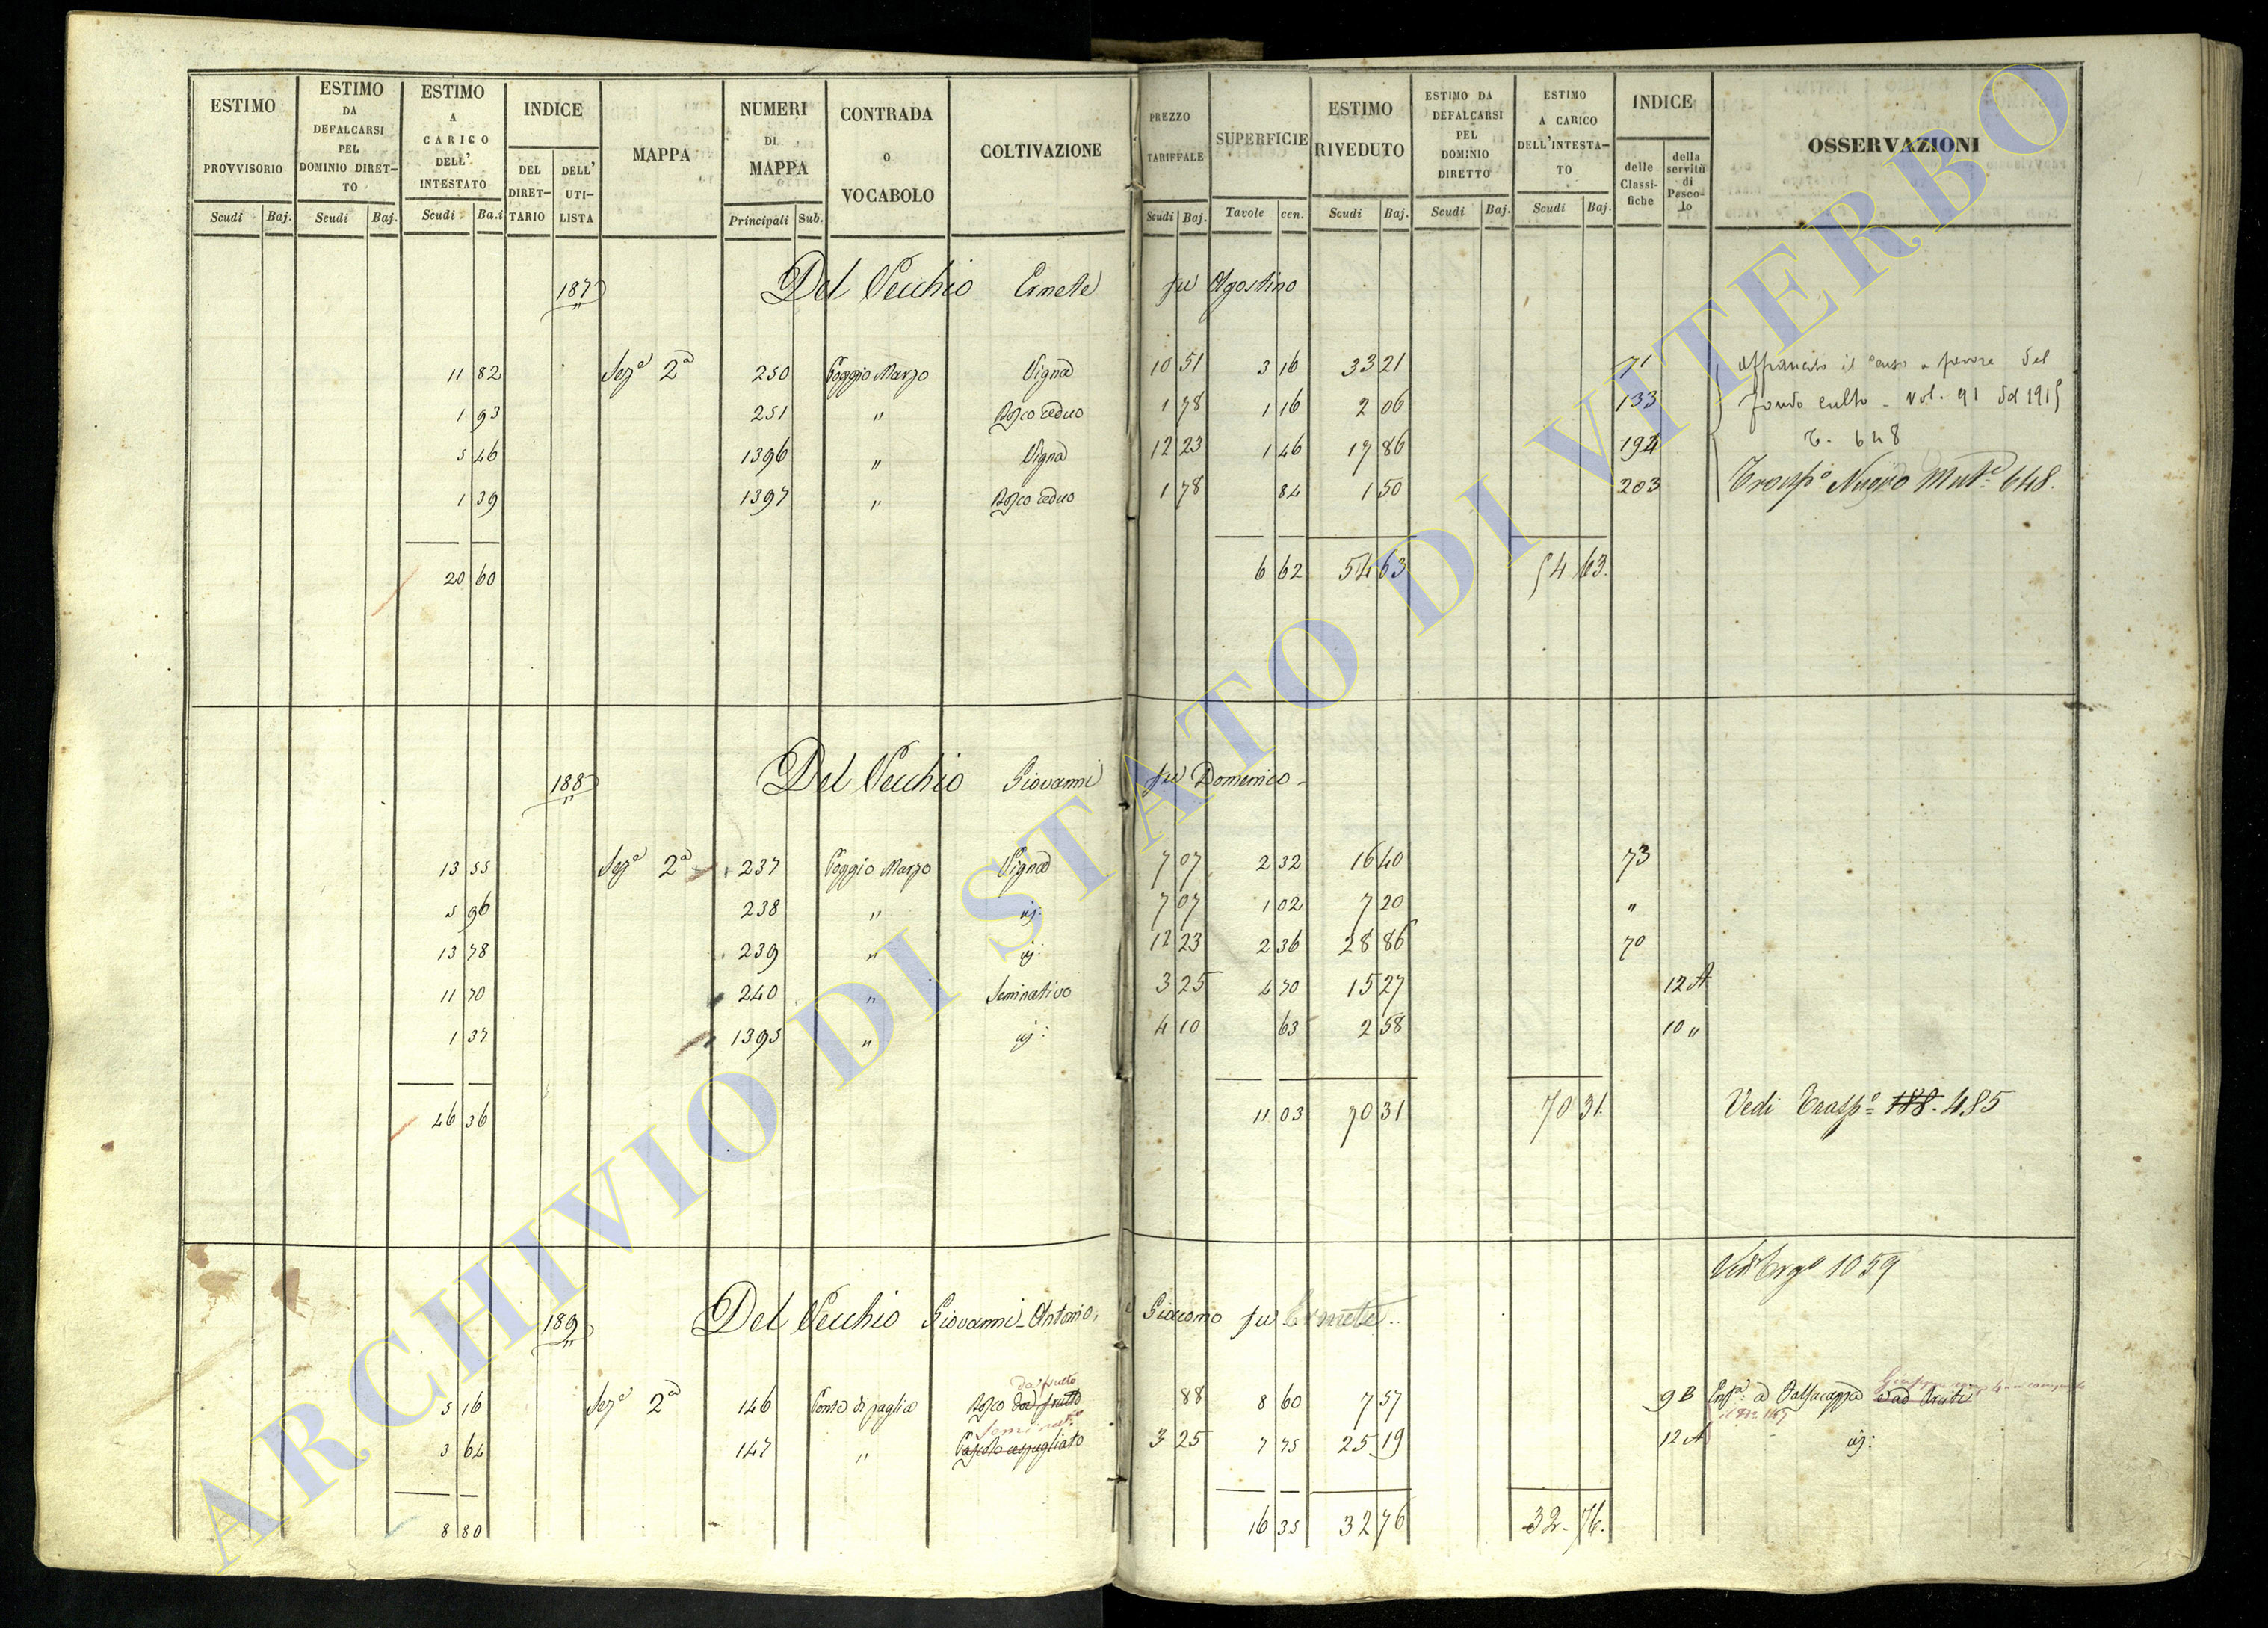 ESTIMO PROVVISORIO Scudi Baj.
ESTIMO DA DEFALCARSI PEL DOMINIO DIRET-TO Scudi Baj.
ESTIMO A CARICO DELL' INTESTATO Scudi Ba.i
INDICE DEL DIRET-TARIO DELL' UTI-LISTA
MAPPA
NUMERI DI MAPPA Principali Sub.
CONTRADA O VOCABOLO
COLTIVAZIONE
PREZZO TARIFFALE Scudi Baj.
SUPERFICIE Tavole cen.
ESTIMO RIVEDUTO Scudi Baj.
ESTIMO DA DEFALCARSI PEL DOMINIO DIRETTO Scudi Baj.
ESTIMO A CARICO DELL'INTESTA-TO Scudi Baj.
INDICE delle Classi-fiche della servitù di Pasco-lo
OSSERVAZIONI
187 Del Vecchio Ernete fu Agostino
11 82 Sez.e 2a 250 Poggio Marzo Vigna 10 51 3 16 33 21 71 Affrancato il censo a favore del
1 93 251 " Bosco ceduo 1 78 1 16 2 06 133 fondo culto - vol. 91 del 1915
5 46 1396 " Vigna 12 23 1 46 17 86 194 T. 648
1 39 1397 " Bosco ceduo 1 78 84 1 50 203 Trasp.o 648.
20 60 6 62 54 63 54 63.
188 Del Vecchio Giovanni fu Domenico -
13 55 Sez.e 2a 237 Poggio Marzo Vigna 7 07 2 32 16 40 73
5 96 238 " id: 7 07 1 02 7 20 "
13 78 239 " id: 12 23 2 36 28 86 70
11 70 240 " Seminativo 3 25 4 70 15 27 12 A
1 37 1395 " id: 4 10 63 2 58 10 "
46 36 11 03 70 31 70 31. Vedi Trasp.o 188. 485
1059
189 Del Vecchio Giovanni-Antonio, Giacomo fu Ernete..
da frutto
5 16 Sez.e 2a 146 Ponte di paglia Bosco da frutto 88 8 60 7 57 9 B
il N. 147
Seminat.o
3 64 147 " Pascolo cespugliato 3 25 7 75 25 19 12 A id:
8 80 16 35 32 76 32. 76.
ARCHIVIO DI STATO DI VITERBO